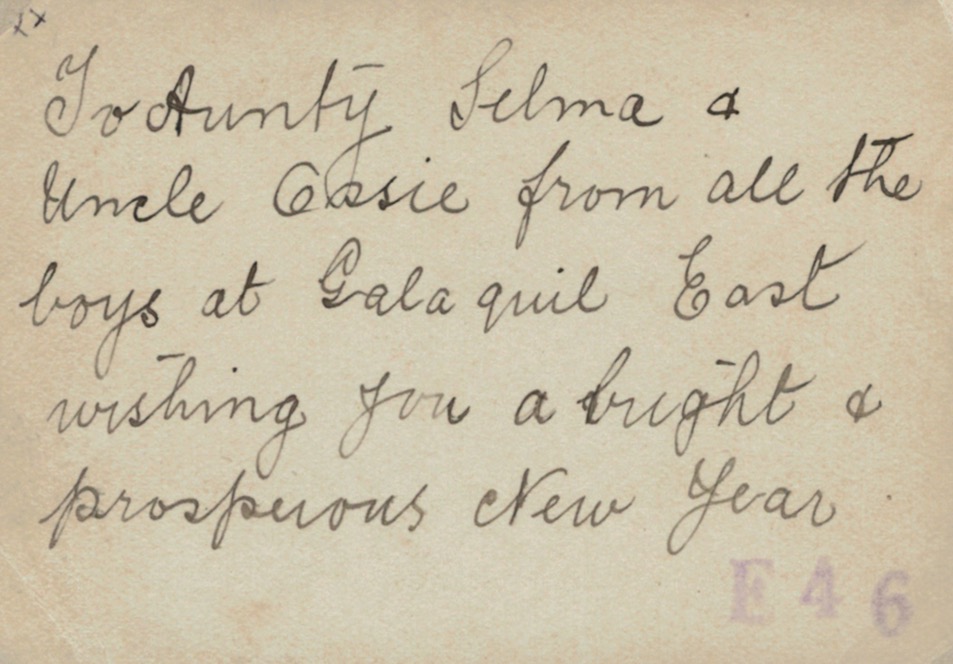 xx
To Aunty Selma &
Uncle Ossie from all the
boys at Galaquil East
wishing you a bright &
prosperous New Year
E 4 6